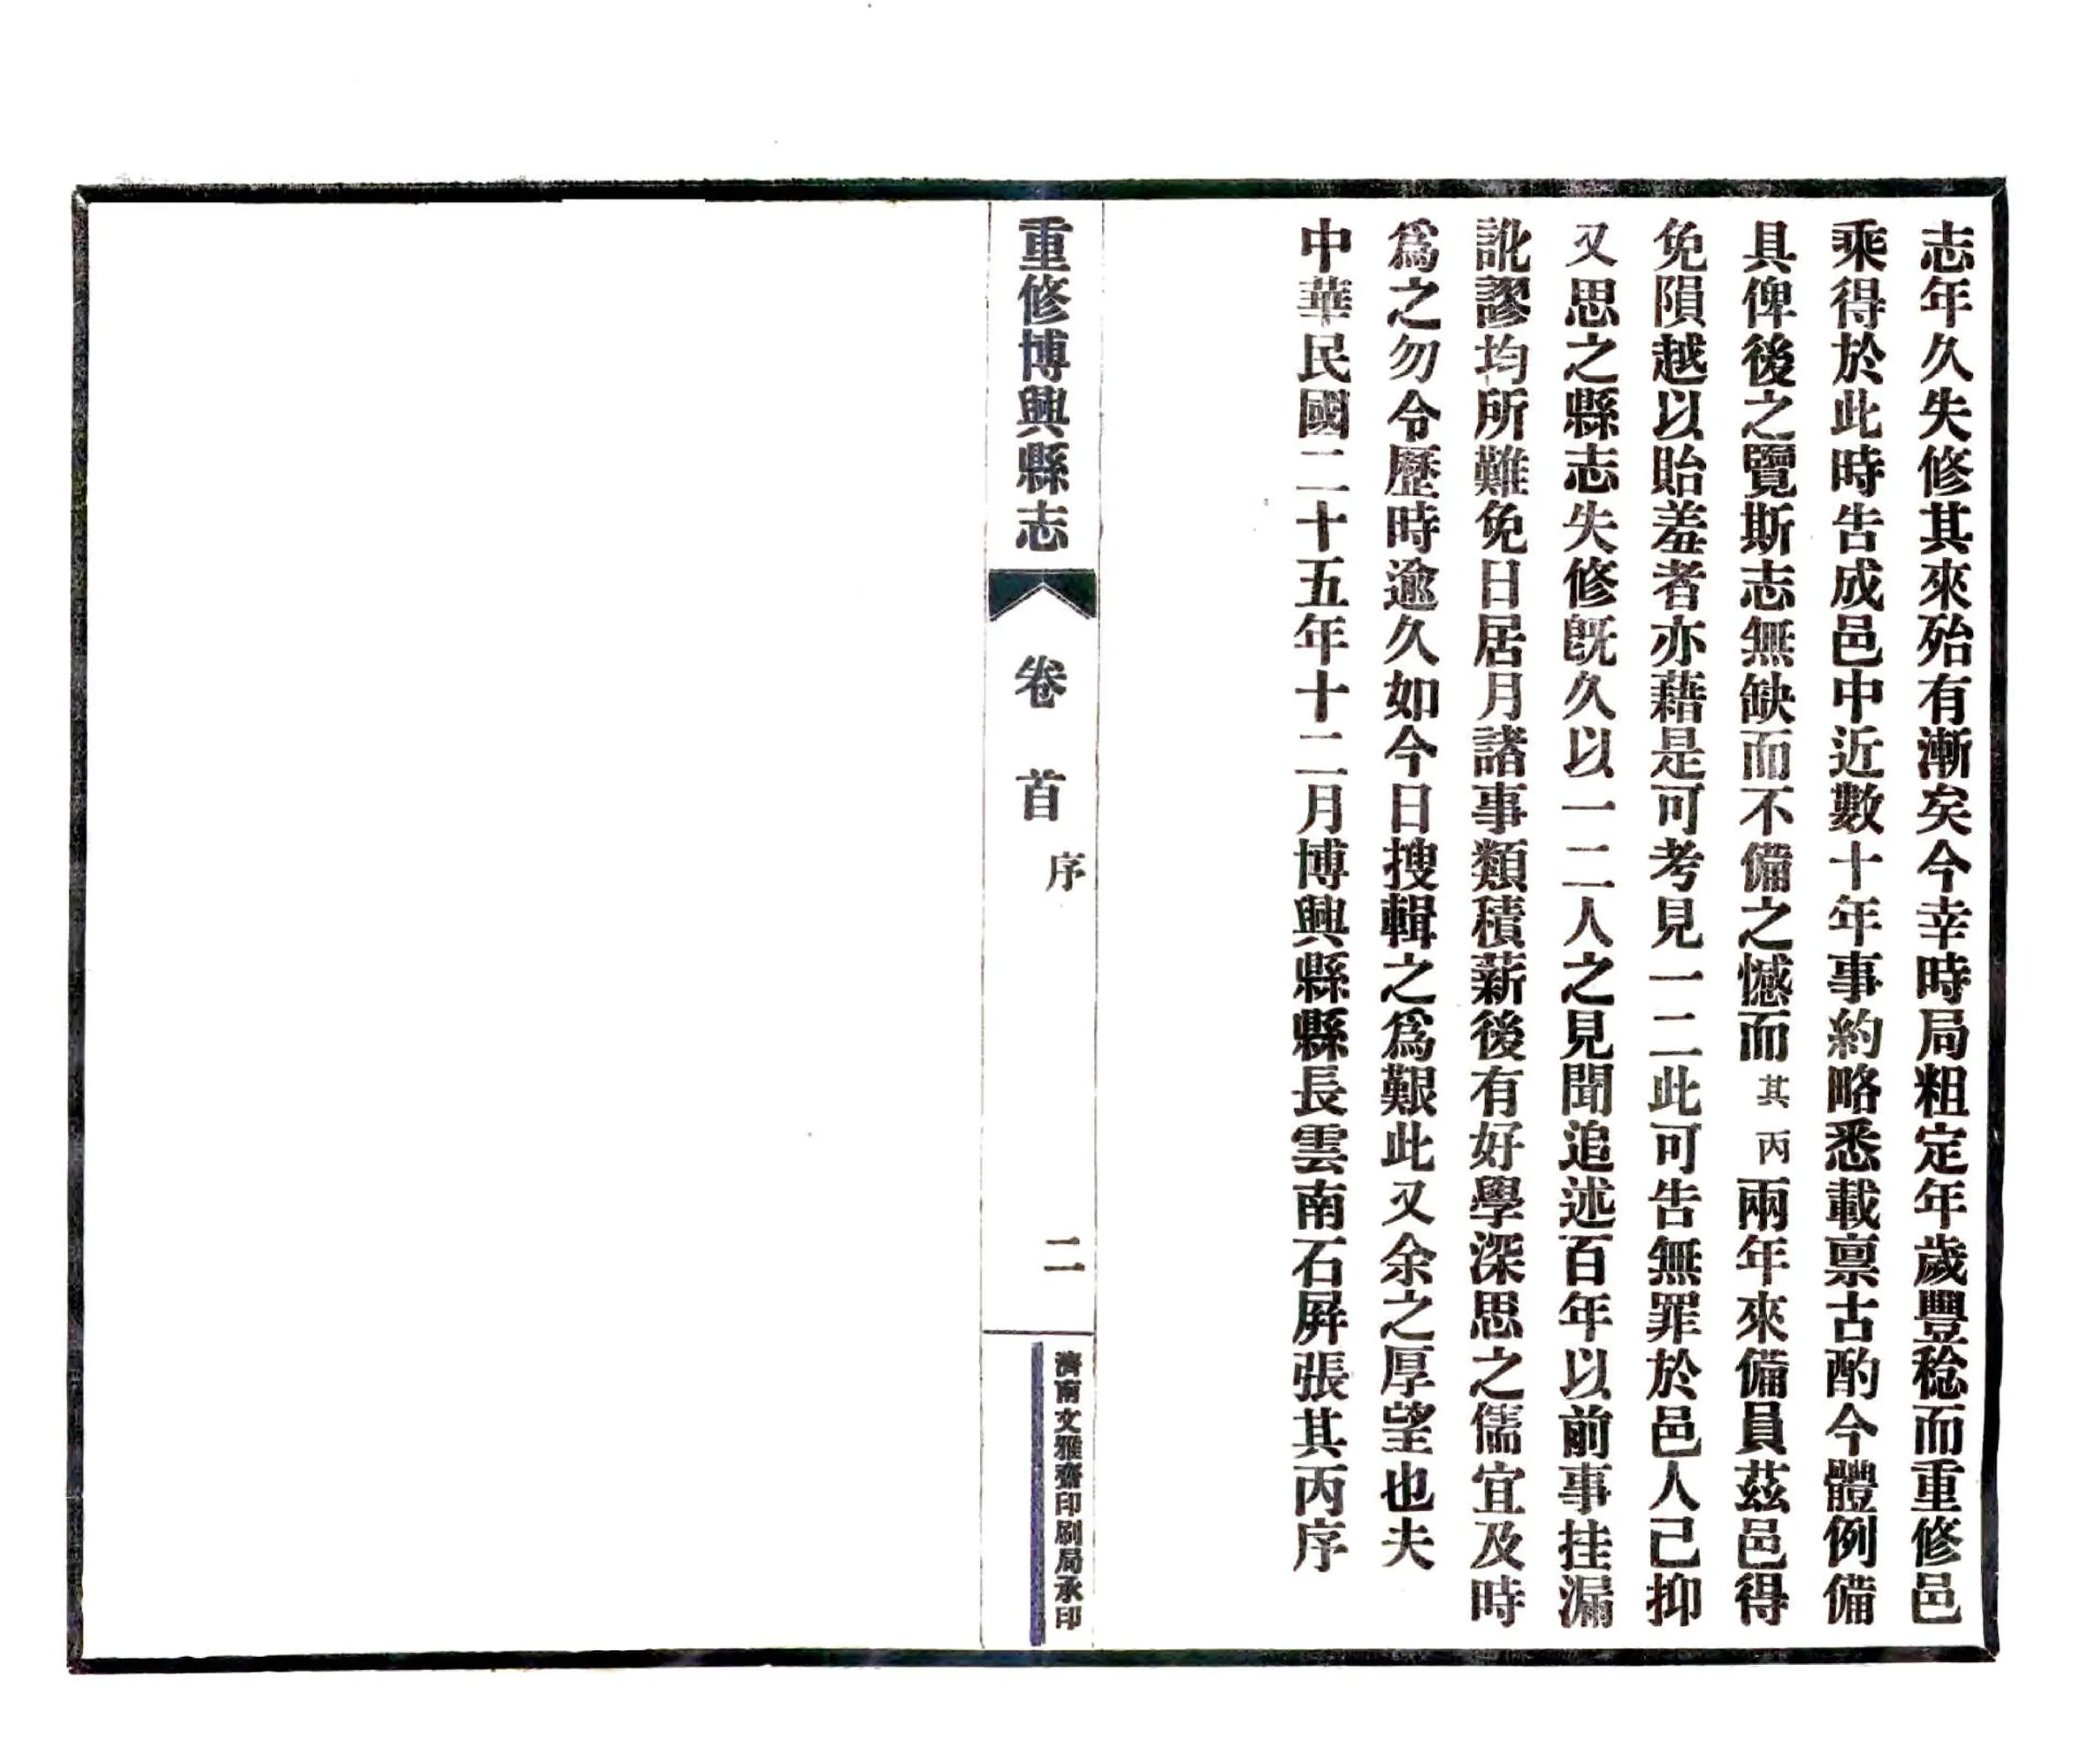 志年久失修其來殆有漸矣今幸時局粗定年歲豐稔而重修邑
乘得於此時告成邑中近數十年事約略悉載禀古酌今體例備
具俾後之覽斯志無缺而不備之憾而其丙兩年來備員茲邑得
免隕越以貽羞者亦藉是可考見一二此可告無罪於邑人已抑
又思之縣志失修既久以一二人之見聞追述百年以前事挂漏
訛謬均所難免日居月諸事類積薪後有好學深思之儒宜及時
爲之勿令歷時逾久如今日搜輯之爲艱此又余之厚望也夫
中華民國二十五年十二月博興縣縣長雲南石屏張其丙序
重修博興縣志
卷首
序
二
濟南文雅齋印刷局承印